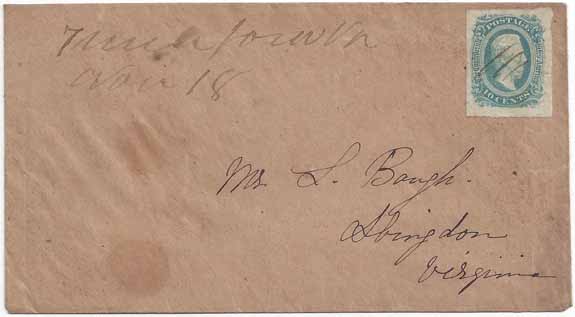 Nov 18
POSTAGE
10 CENTS
Mr. L. Baugh.
Abingdon
Virginia